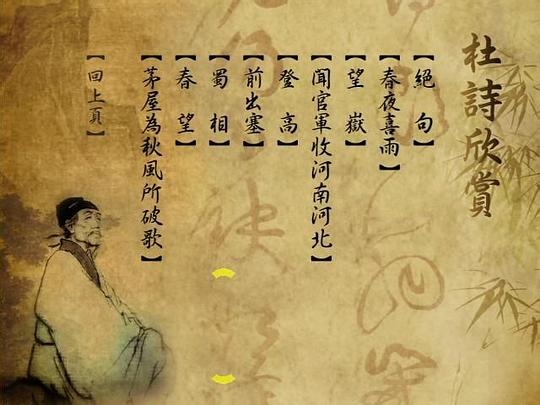 杜詩欣賞
【絕句】
【春夜喜雨】
【望嶽】
【聞官軍收河南河北】
【登高】
【前出塞】
【蜀相】
【春望】
【茅屋為秋風所破歌】
【回上頁】